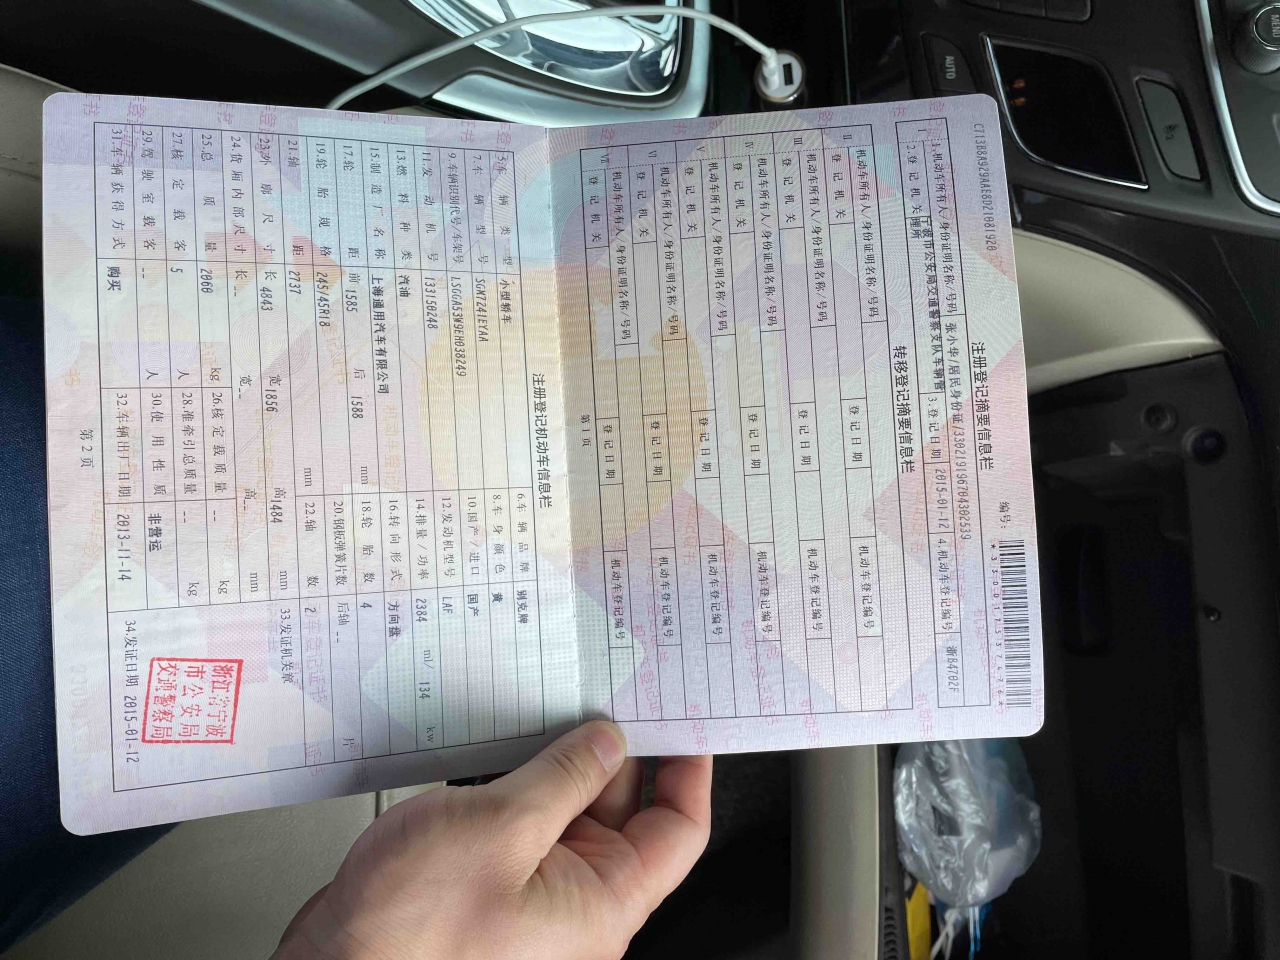 C713B8A929AAE8D2108192B
编号:
*330017537476*
注册登记摘要信息栏
1.机动车所有人/身份证明名称/号码 张小华/居民身份证/330219196704302539
2.登记机关 宁波市公安局交通警察支队车辆管理所 3.登记日期 2015-01-12 4.机动车登记编号 浙B4702F
转移登记摘要信息栏
II 机动车所有人/身份证明名称/号码
登记机关 登记日期 机动车登记编号
III 机动车所有人/身份证明名称/号码
登记机关 登记日期 机动车登记编号
IV 机动车所有人/身份证明名称/号码
登记机关 登记日期 机动车登记编号
V 机动车所有人/身份证明名称/号码
登记机关 登记日期 机动车登记编号
VI 机动车所有人/身份证明名称/号码
登记机关 登记日期 机动车登记编号
VII 机动车所有人/身份证明名称/号码
登记机关 登记日期 机动车登记编号
第 1 页
注册登记机动车信息栏
5.车辆类型 小型轿车 6.车辆品牌 别克牌
7.车辆型号 SGM7241EYAA 8.车身颜色 黄
9.车辆识别代号/车架号 LSGGA53W9EH038249 10.国产/进口 国产
11.发动机号 133150248 12.发动机型号 LAF
13.燃料种类 汽油 14.排量/功率 2384 ml/ 134 kw
15.制造厂名称 上海通用汽车有限公司 16.转向形式 方向盘
17.轮距 前 1585 后 1588 mm 18.轮胎数 4
19.轮胎规格 245/45R18 20.钢板弹簧片数 后轴 -- 片
21.轴距 2737 mm 22.轴数 2
23.外廓尺寸 长 4843 宽 1856 高 1484 mm
24.货厢内部尺寸 长 -- 宽 -- 高 -- mm
25.总质量 2060 kg 26.核定载质量 -- kg
27.核定载客 5 人 28.准牵引总质量 -- kg
29.驾驶室载客 -- 人 30.使用性质 非营运
31.车辆获得方式 购买 32.车辆出厂日期 2013-11-14
33.发证机关章
浙江省宁波
市公安局
交通警察局
34.发证日期 2015-01-12
第 2 页
AUTO
MENU